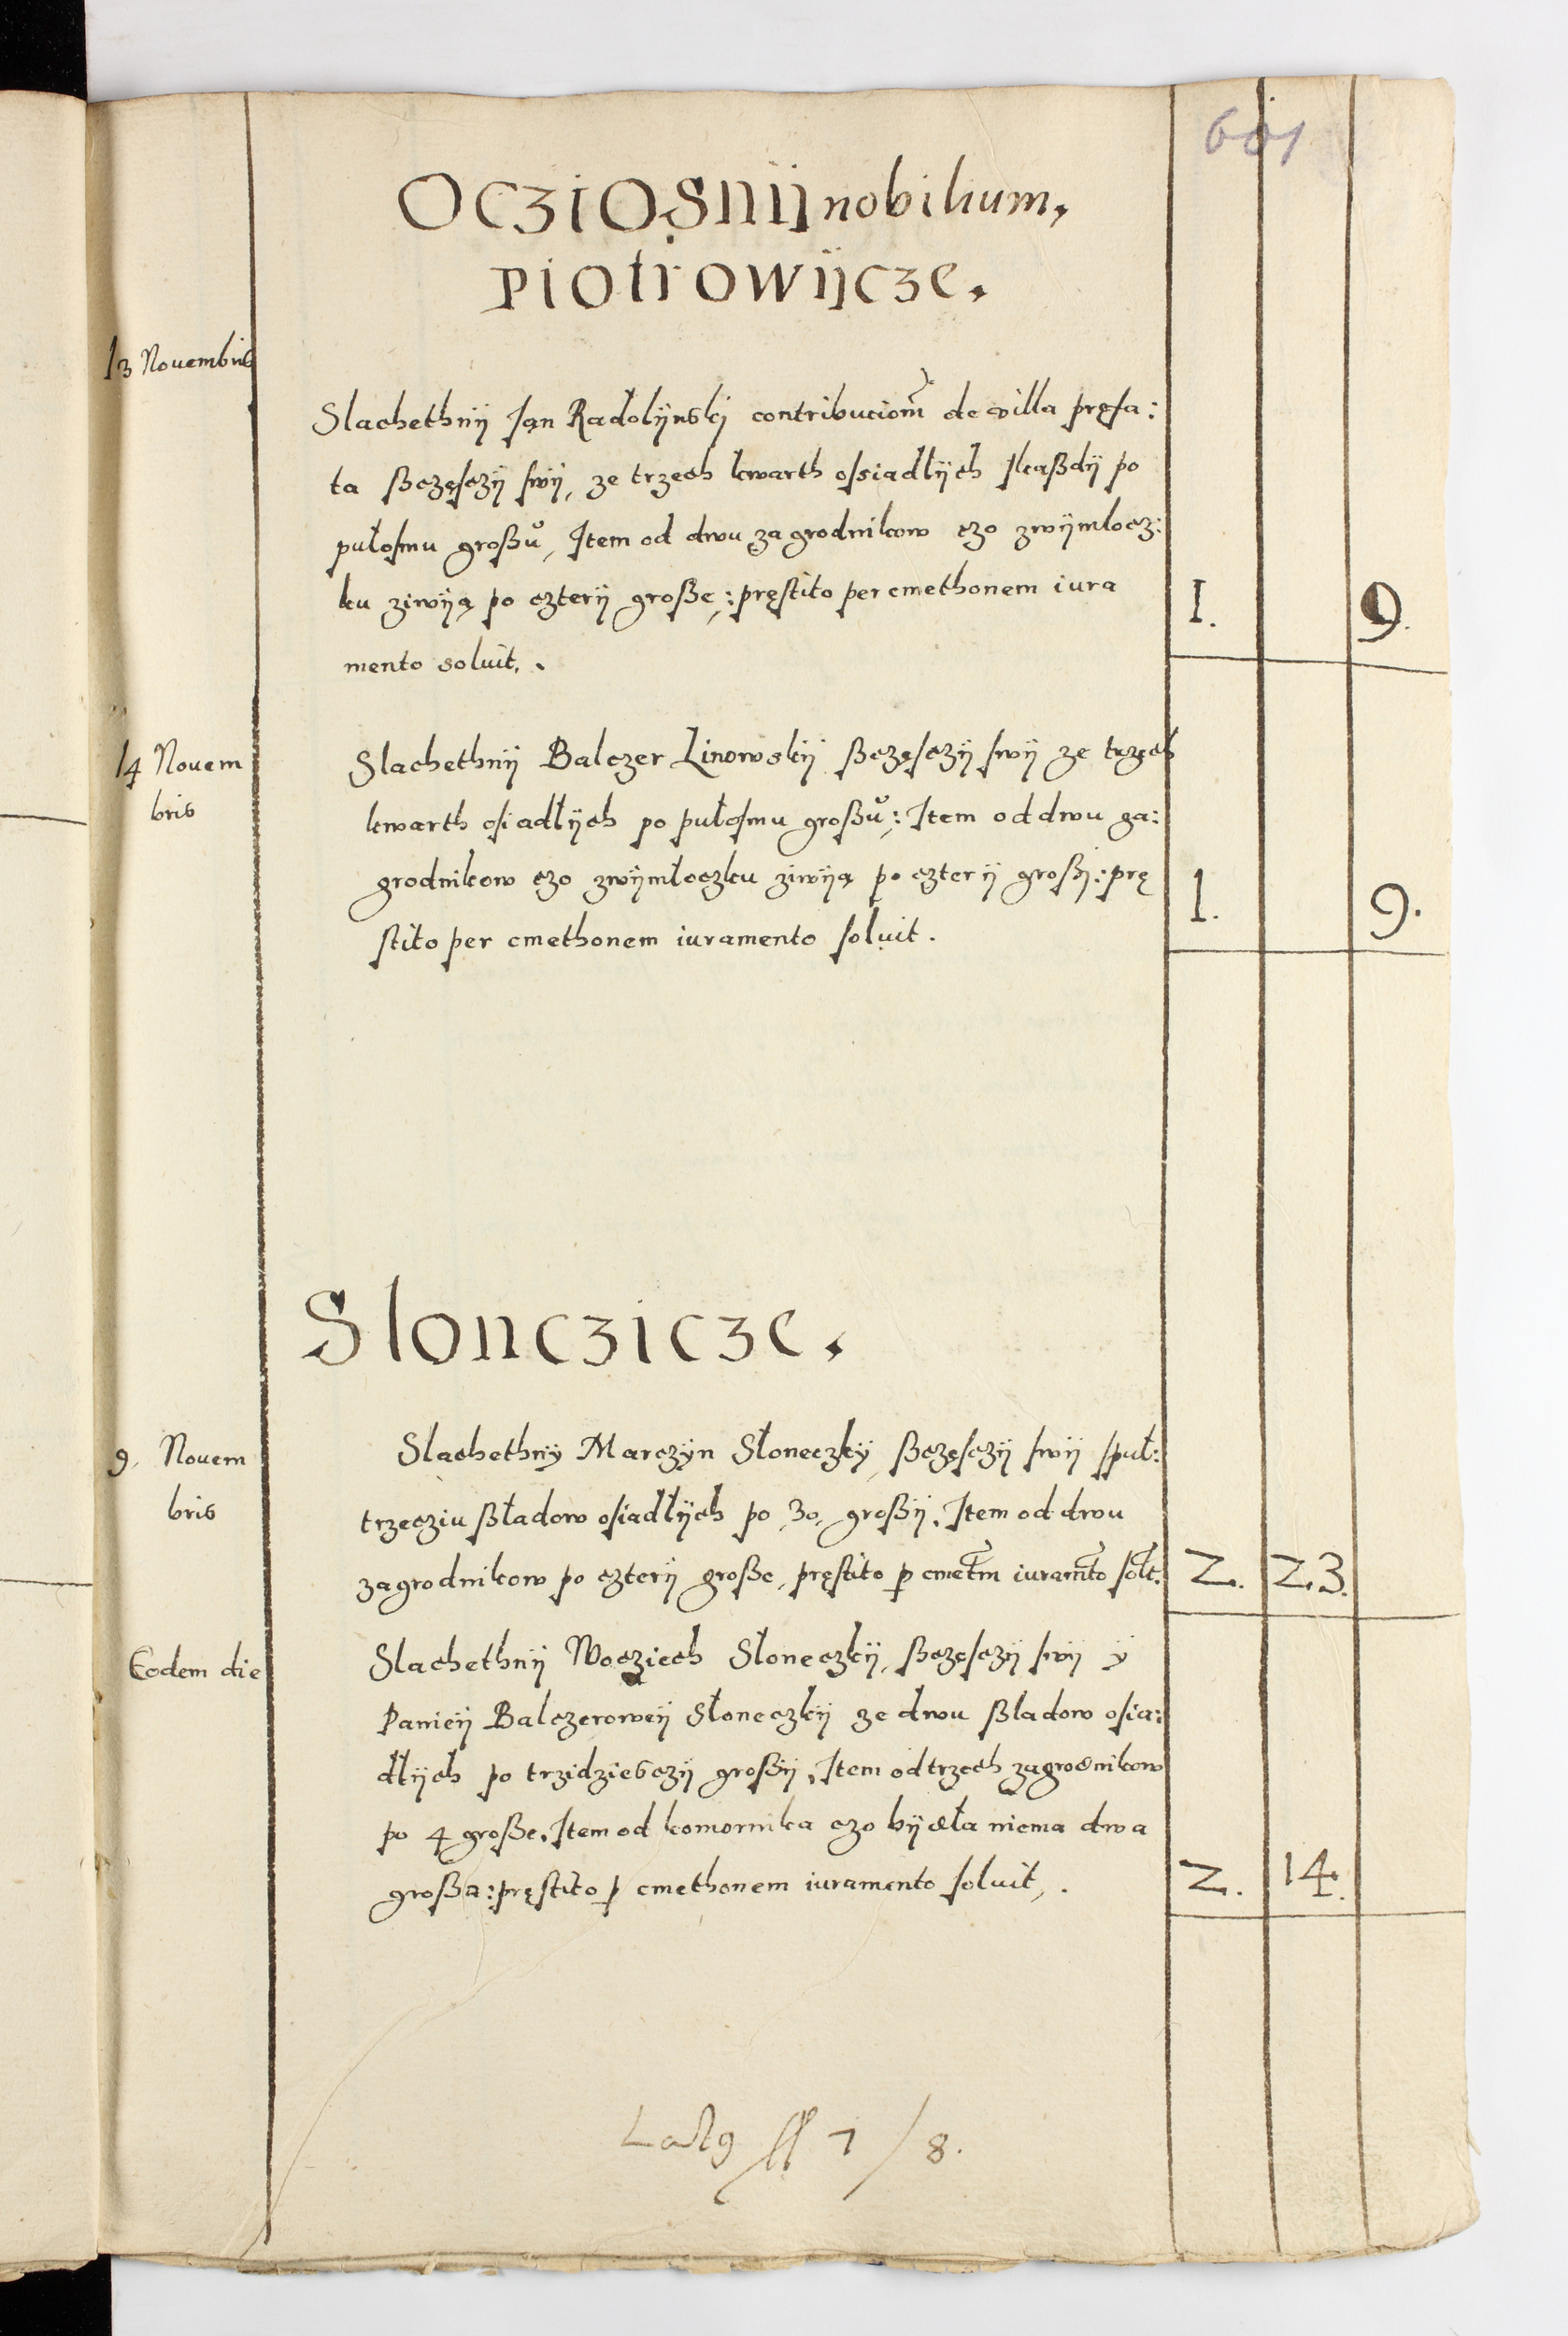 601
Ocziosnij nobilium,
Piotrowijcze.
13 Nouembris
Slachethnij Jan Radolijnskj contributiom̃ de villa pręfa:
ta ßczęſczij ſwij, ze trzech kwarth oſsiadłijch ſkaßdij po
pułoſmu großu, Item od dwu zagrodnikow czo zwijmłocz:
ku ziwiją po czterij große: pręſtito per cmethonem iura
mento soluit.
I. 9.
14 Nouem
bris
Slachethnij Balczer Linowskij ßczęſczij ſwij ze trzech
kwarth oſiadłijch po pułoſmu großu: Item od dwu za:
grodnikow czo zwijmłoczku ziwiją po czterij großj: prę
ſtito per cmethonem iuramento ſoluit.
1. 9.
Slonczicze.
9. Nouem
bris
Slachethnÿ Marczÿn Słoneczkÿ, ßczęſczij ſwij ſpuł:
trzecziu ßładow oſiadłijch po 30, großij. Item od dwu
zagrodnikow po czterij große, pręſtito p cmetm iuramto ſolt.
2. 23.
Eodem die
Slachethnij Wocziech Słoneczkij, ßczęſczij ſwij ÿ
Panieij Balczeroweij Słoneczkij ze dwu ßladow oſia:
dłijch po trzidzieſczij großij, Item od trzech zagrodnikow
po 4 große. Item od komornika czo bijdła niema dwa
großa: pręſtito p cmethonem iuramento ſoluit.
2. 14.
7/8.